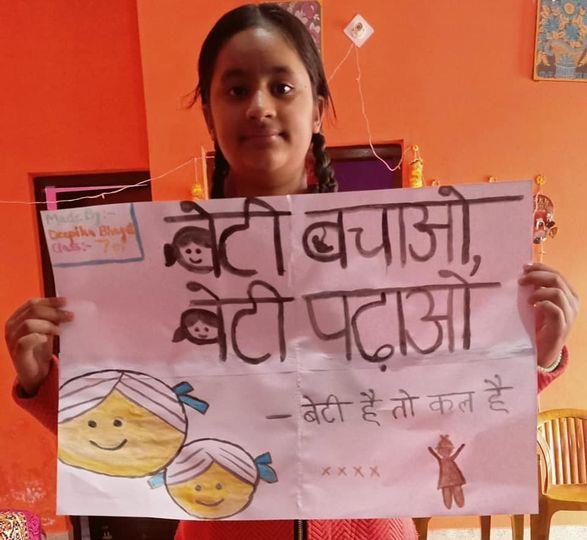 Made By:-
Deepika Bhagat
Class:- 7th
बेटी बचाओ,
बेटी पढ़ाओ
- बेटी है तो कल है
xxxx